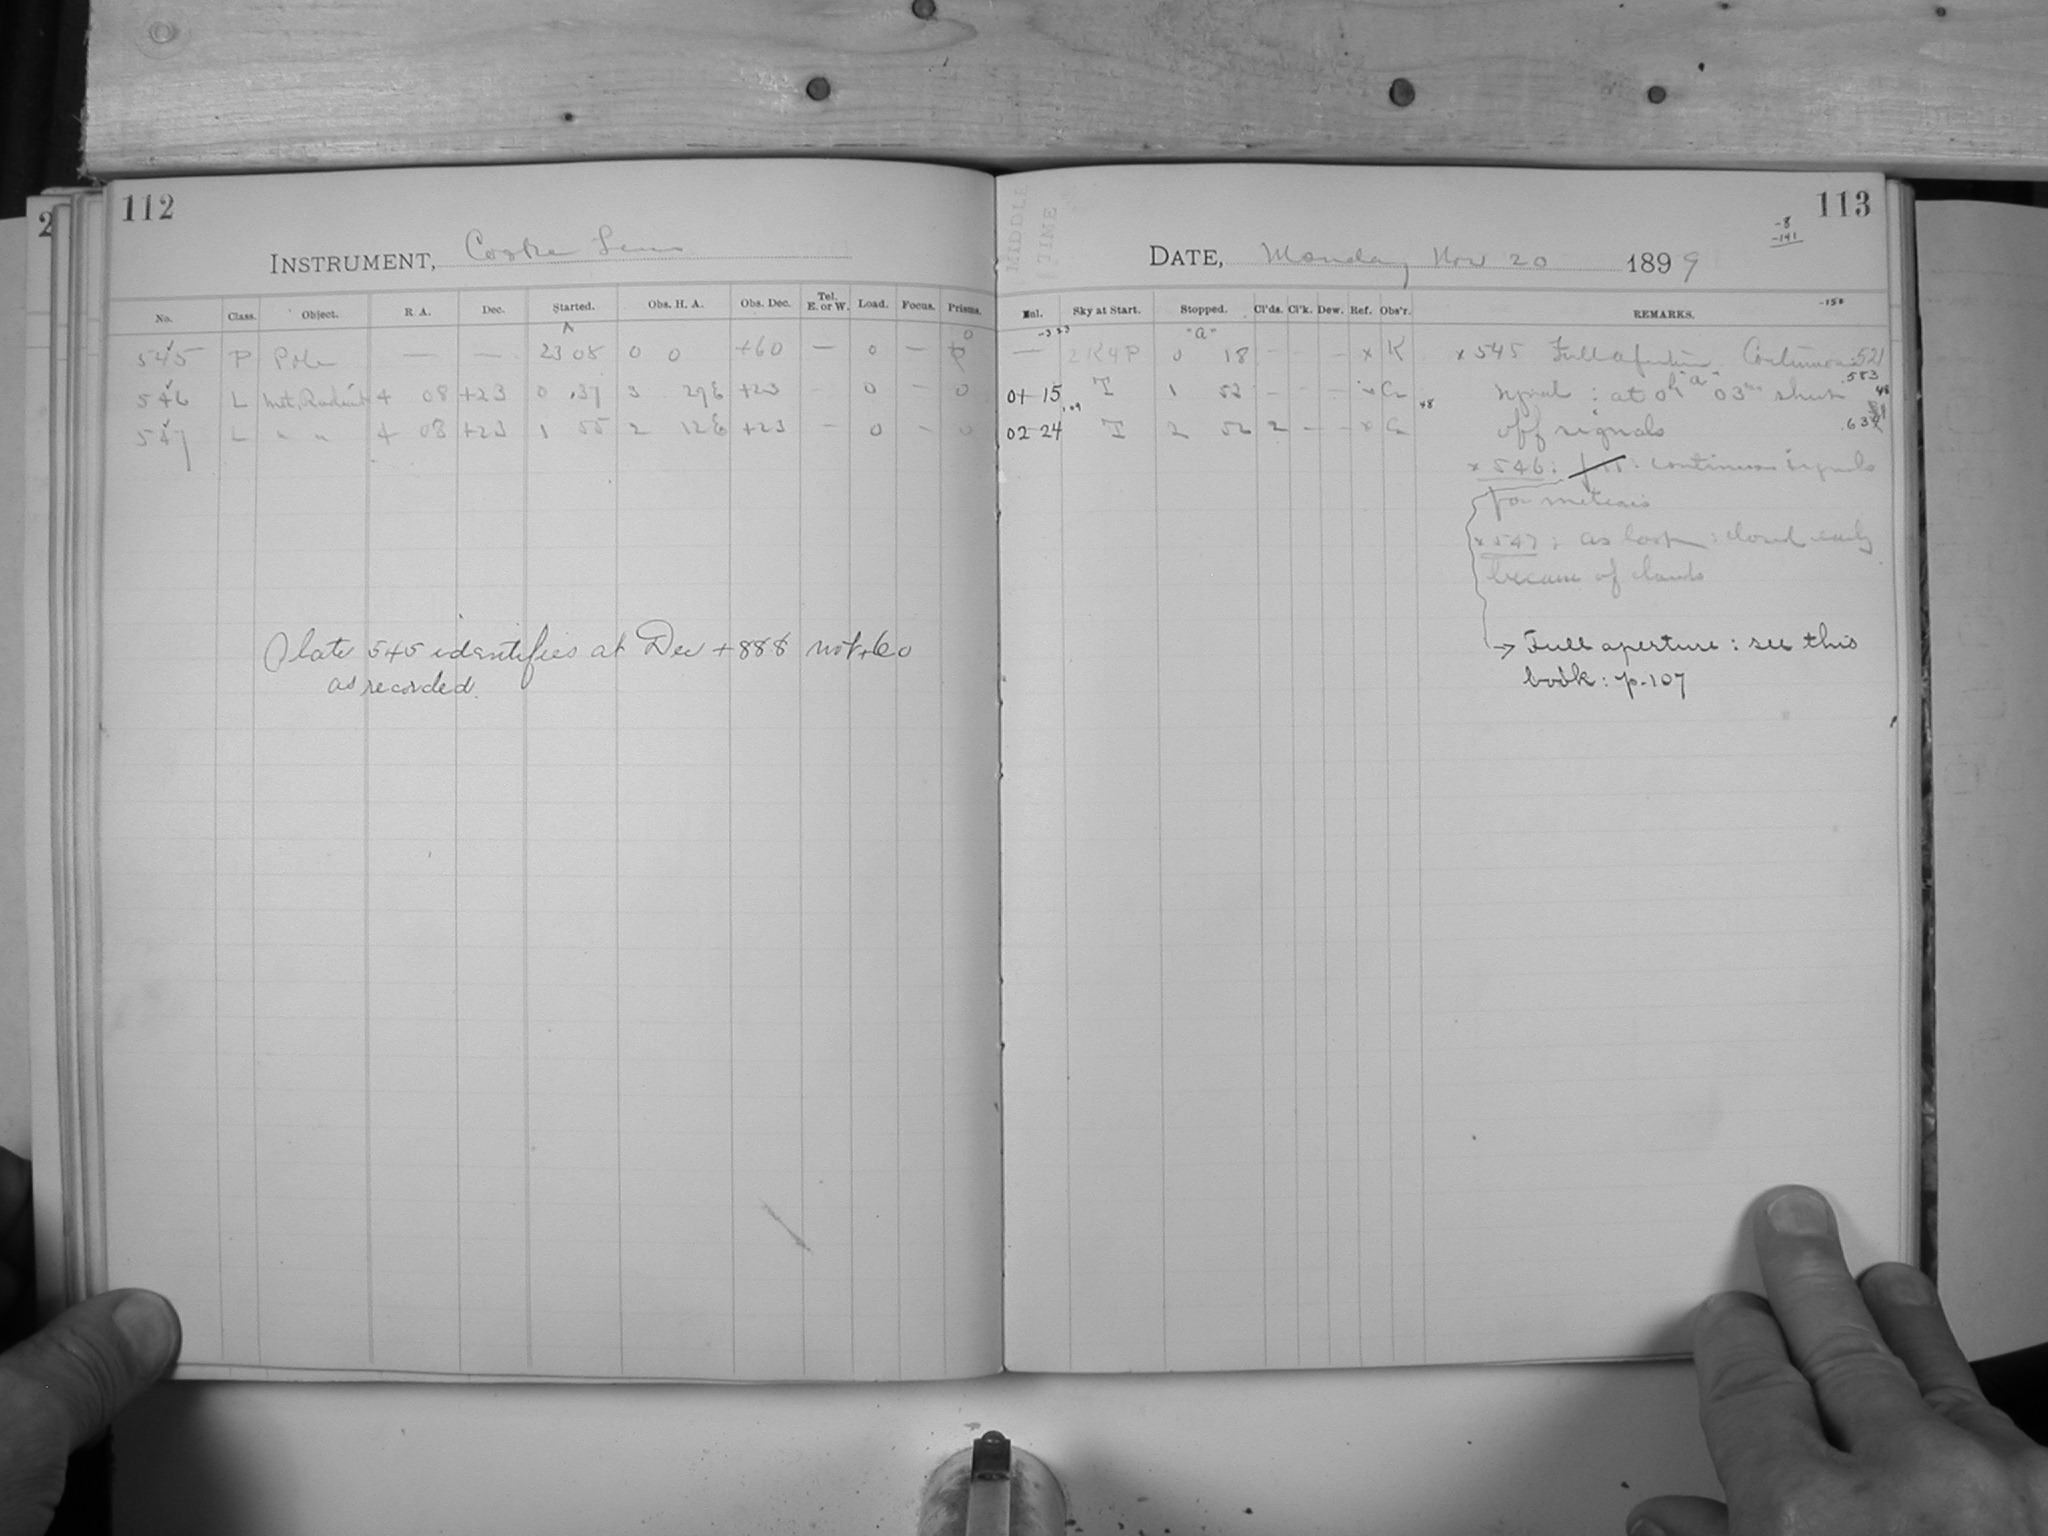 2
112
INSTRUMENT, Cooke Lens
No. Class. Object. R. A. Dec. Started. Obs. H. A. Obs. Dec. Tel. E. or W. Load. Focus. Prisms.
545 P Pole — — 23 08 0 0 +60 — 0 — 0
546 L Met. Radiant 4 08 +23 0 37 3 29E +23 – 0 – 0
547 L " " 4 08 +23 1 55 2 12E +23 – 0 – 0
Plate 545 identifies at Dec +88 not +60
as recorded.
MIDDLE
TIME
113
-8
-141
-150
DATE, Monday Nov 20 1899
Enl. Sky at Start. Stopped. Cl'ds. Cl'k. Dew. Ref. Obs'r. REMARKS.
— 2K4P 0 "a" 18 – – – x K x 545 Full aperture. Continuous .521
01 15 T 1 53 – – – x signal : at 0h "a" 03m shut .583
02 24 T 2 52 2 – – x off signals
x 546: continuous signals
for meteors
x 547 : as before : closed early
because of clouds
→ Full aperture : see this
book : p. 107